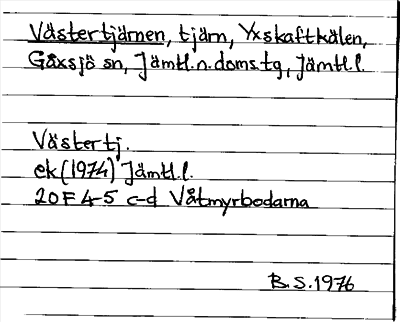 Västertjärnen, tjärn, Yxskaftkälen,
Gåxsjö sn, Jämtl.n.doms.tg, Jämtl.l.
Västertj.
ek(1974) Jämtl.l.
20F 4-5 c-d Våtmyrbodarna
B.S.1976